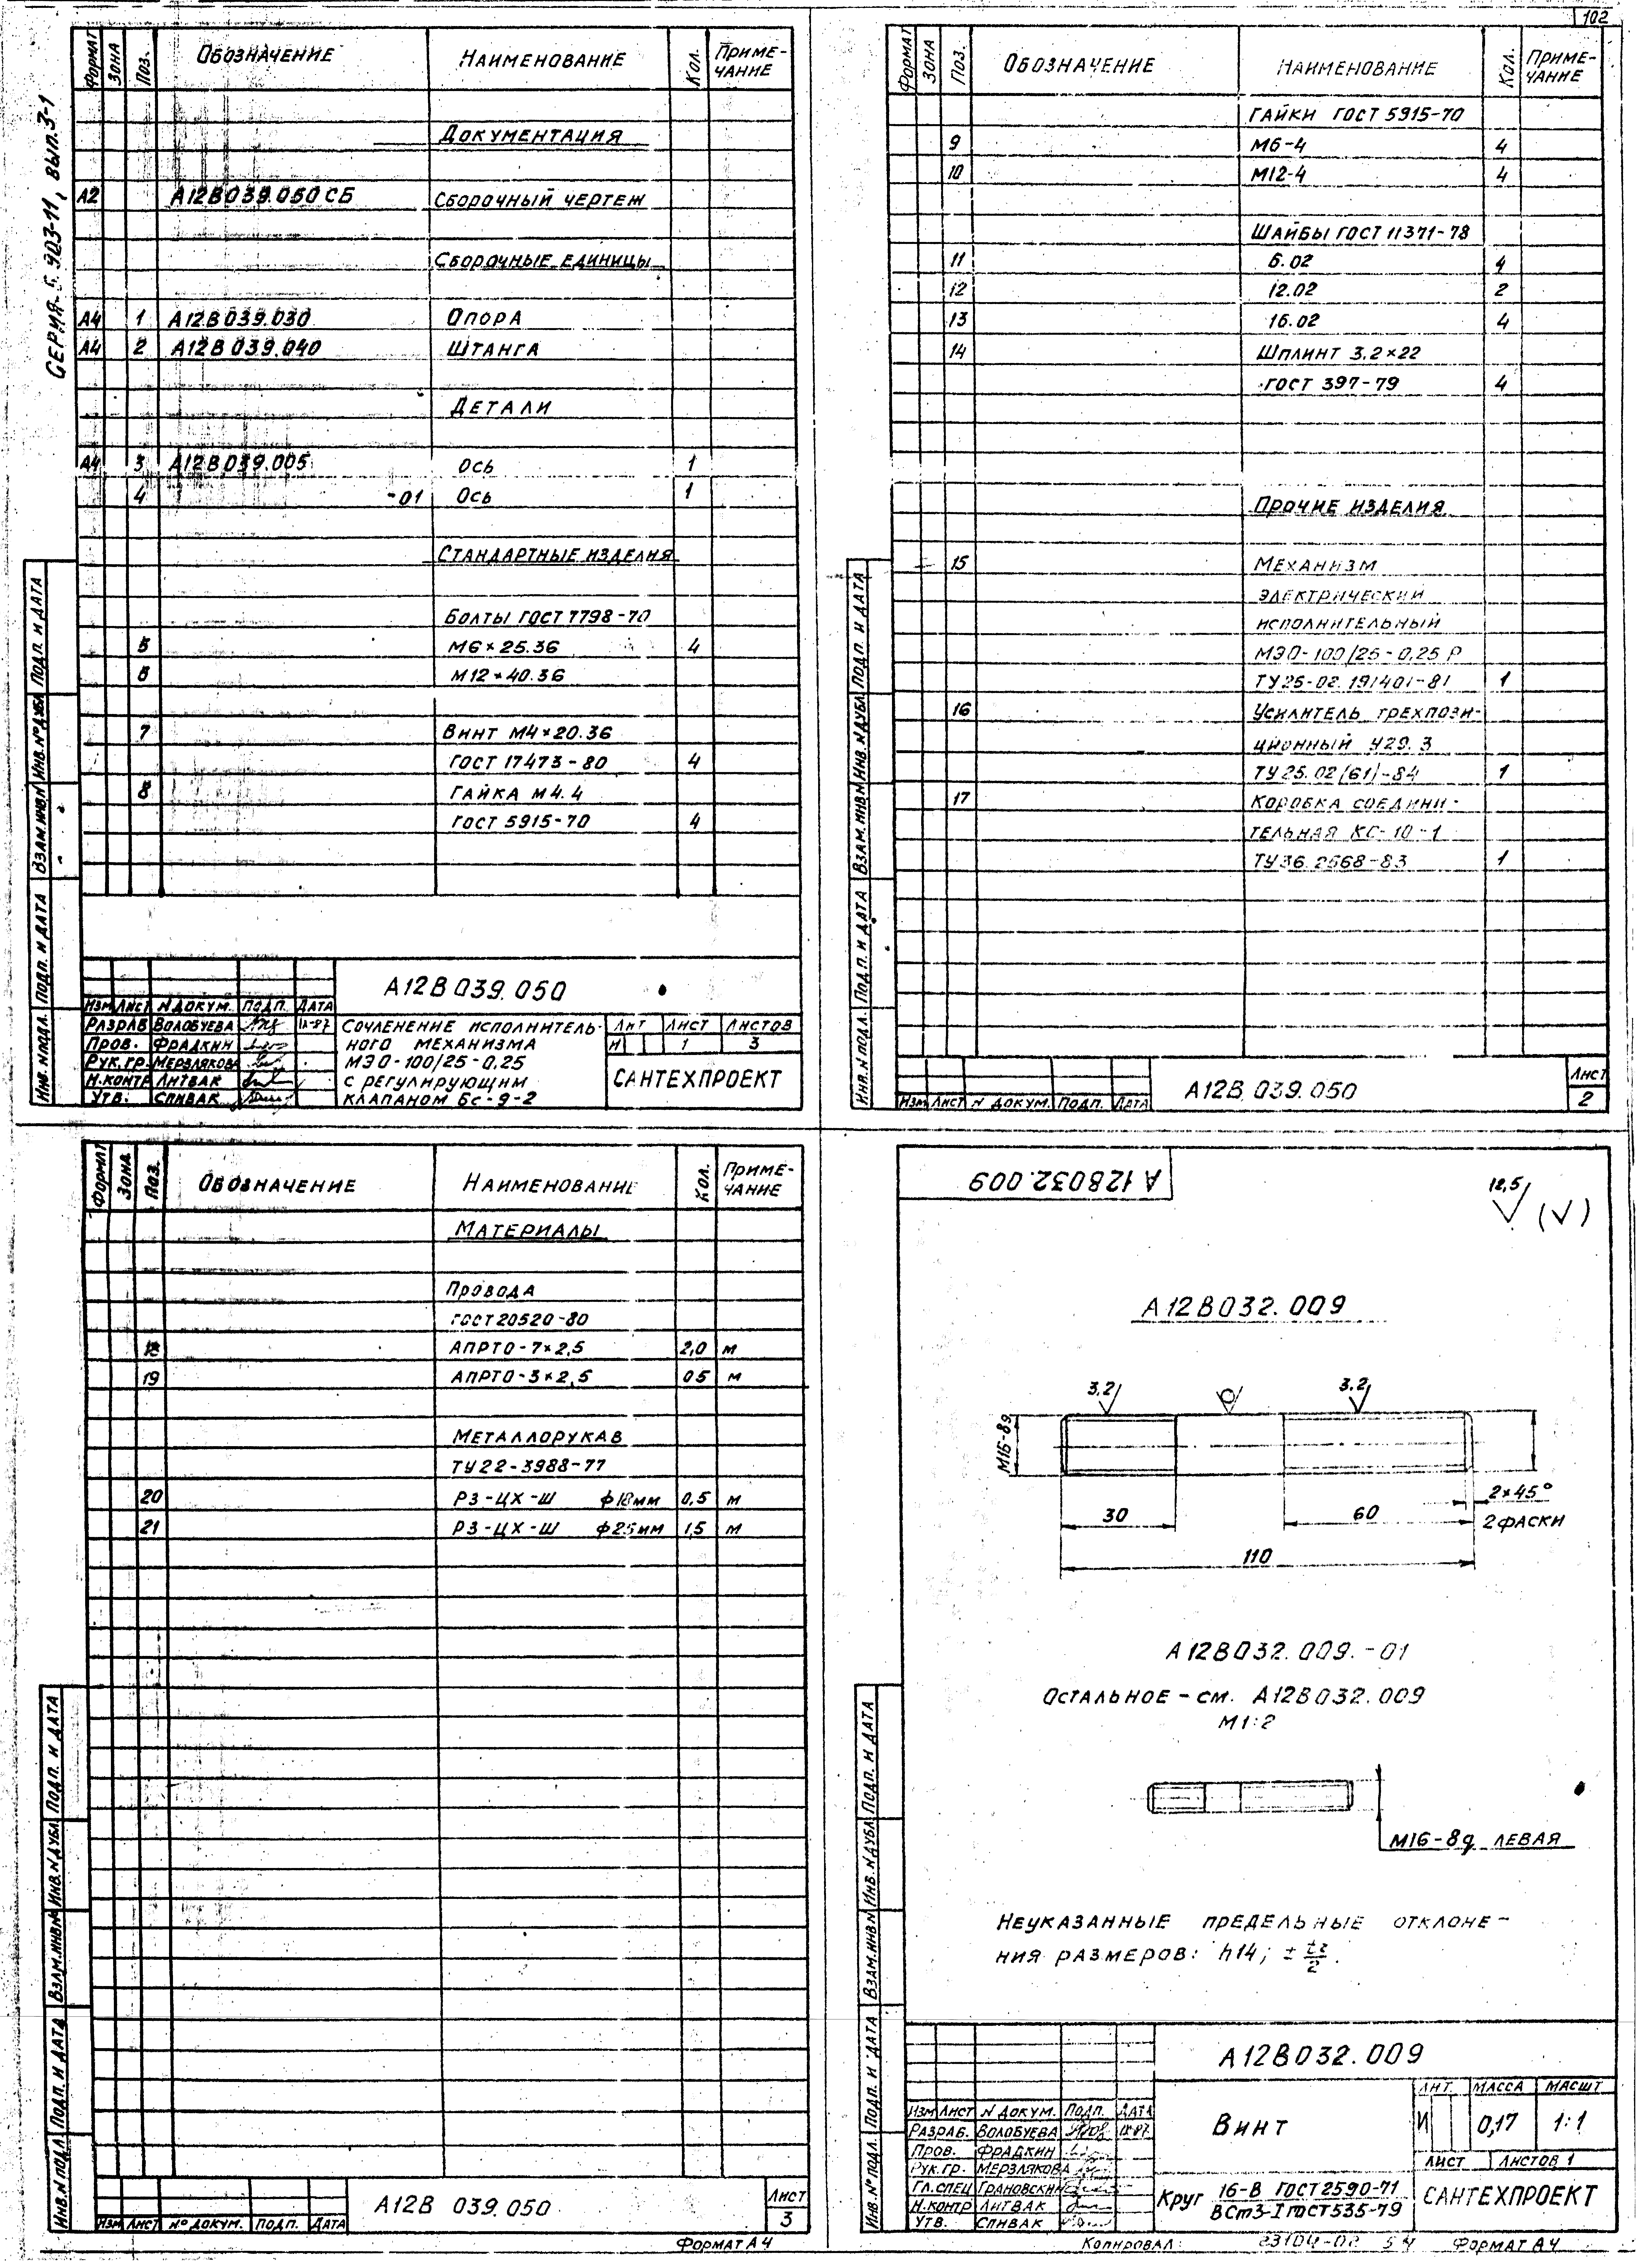 102
СЕРИЯ 5.903-11, ВЫП.3-1
ФОРМАТ ЗОНА ПОЗ. ОБОЗНАЧЕНИЕ НАИМЕНОВАНИЕ КОЛ. ПРИМЕ-
ЧАНИЕ
ДОКУМЕНТАЦИЯ
А2 А12В039.050 СБ СБОРОЧНЫЙ ЧЕРТЕЖ
СБОРОЧНЫЕ ЕДИНИЦЫ
А4 1 А12В039.030 ОПОРА
А4 2 А12В039.040 ШТАНГА
ДЕТАЛИ
А4 3 А12В039.005 ОСЬ 1
4 -01 ОСЬ 1
СТАНДАРТНЫЕ ИЗДЕЛИЯ
БОЛТЫ ГОСТ 7798-70
5 М6×25.36 4
6 М12×40.36
7 ВИНТ М4×20.36
ГОСТ 17473-80 4
8 ГАЙКА М4.4
ГОСТ 5915-70 4
ИНВ. № ПОДЛ. ПОДП. И ДАТА ВЗАМ.ИНВ.№ ИНВ.№ ДУБЛ. ПОДП. И ДАТА
А12В039.050
ИЗМ ЛИСТ N ДОКУМ. ПОДП. ДАТА
РАЗРАБ ВОЛОБУЕВА IX-87
ПРОВ. ФРАДКИН
РУК.ГР. МЕРЗЛЯКОВА
Н.КОНТР ЛИТВАК
УТВ. СПИВАК
СОЧЛЕНЕНИЕ ИСПОЛНИТЕЛЬ-
НОГО МЕХАНИЗМА
МЭО-100/25-0.25
С РЕГУЛИРУЮЩИМ
КЛАПАНОМ 6с-9-2
ЛИТ ЛИСТ ЛИСТОВ
И 1 3
САНТЕХПРОЕКТ
ФОРМАТ ЗОНА ПОЗ. ОБОЗНАЧЕНИЕ НАИМЕНОВАНИЕ КОЛ. ПРИМЕ-
ЧАНИЕ
ГАЙКИ ГОСТ 5915-70
9 М6-4 4
10 М12-4 4
ШАЙБЫ ГОСТ 11371-78
11 6.02 4
12 12.02 2
13 16.02 4
14 ШПЛИНТ 3.2×22
ГОСТ 397-79 4
ПРОЧИЕ ИЗДЕЛИЯ
15 МЕХАНИЗМ
ЭЛЕКТРИЧЕСКИЙ
ИСПОЛНИТЕЛЬНЫЙ
МЭО-100/25-0,25 Р
ТУ 25-02.191401-81 1
16 УСИЛИТЕЛЬ ТРЕХПОЗИ-
ЦИОННЫЙ У29.3
ТУ 25.02(61)-84 1
17 КОРОБКА СОЕДИНИ-
ТЕЛЬНАЯ КС-10-1
ТУ 36.2568-83 1
ИНВ.N ПОДЛ. ПОДП. И ДАТА ВЗАМ.ИНВ.N ИНВ.N ДУБЛ. ПОДП. И ДАТА
ИЗМ ЛИСТ N ДОКУМ. ПОДП. ДАТА
А12В 039.050
ЛИСТ
2
ФОРМАТ ЗОНА ПОЗ. ОБОЗНАЧЕНИЕ НАИМЕНОВАНИЕ КОЛ. ПРИМЕ-
ЧАНИЕ
МАТЕРИАЛЫ
ПРОВОДА
ГОСТ 20520-80
18 АПРТО-7×2,5 2,0 м
19 АПРТО-3×2,5 05 м
МЕТАЛЛОРУКАВ
ТУ 22-3988-77
20 РЗ-ЦХ-Ш ф18мм 0,5 м
21 РЗ-ЦХ-Ш ф25мм 1,5 м
ИНВ.N ПОДЛ ПОДП. И ДАТА ВЗАМ.ИНВ.№ ИНВ.N ДУБЛ. ПОДП. И ДАТА
ИЗМ ЛИСТ № ДОКУМ. ПОДП. ДАТА
А12В 039.050
ЛИСТ
3
ФОРМАТ А4
А12В032.009
12,5 (√)
А12В032.009
3.2 3.2
М16-8g
2×45°
2 ФАСКИ
30 60
110
А12В032.009.-01
ОСТАЛЬНОЕ - СМ. А12В032.009
М1:2
М16-8g ЛЕВАЯ
НЕУКАЗАННЫЕ ПРЕДЕЛЬНЫЕ ОТКЛОНЕ-
НИЯ РАЗМЕРОВ: h14; ± t2/2.
ИНВ.№ ПОДЛ. ПОДП. И ДАТА ВЗАМ.ИНВ.N ИНВ.N ДУБЛ ПОДП. И ДАТА
А12В032.009
ИЗМ ЛИСТ N ДОКУМ. ПОДП. ДАТА
РАЗРАБ. ВОЛОБУЕВА IX-87
ПРОВ. ФРАДКИН
РУК.ГР. МЕРЗЛЯКОВА
ГЛ.СПЕЦ ГРАНОВСКИЙ
Н.КОНТР ЛИТВАК
УТВ. СПИВАК
ВИНТ
ЛИТ. МАССА МАСШТ
И 0,17 1:1
ЛИСТ ЛИСТОВ 1
КРУГ 16-В ГОСТ 2590-71
ВСт3-I ГОСТ 535-79
САНТЕХПРОЕКТ
КОПИРОВАЛ: 23104-02 54 ФОРМАТ А4